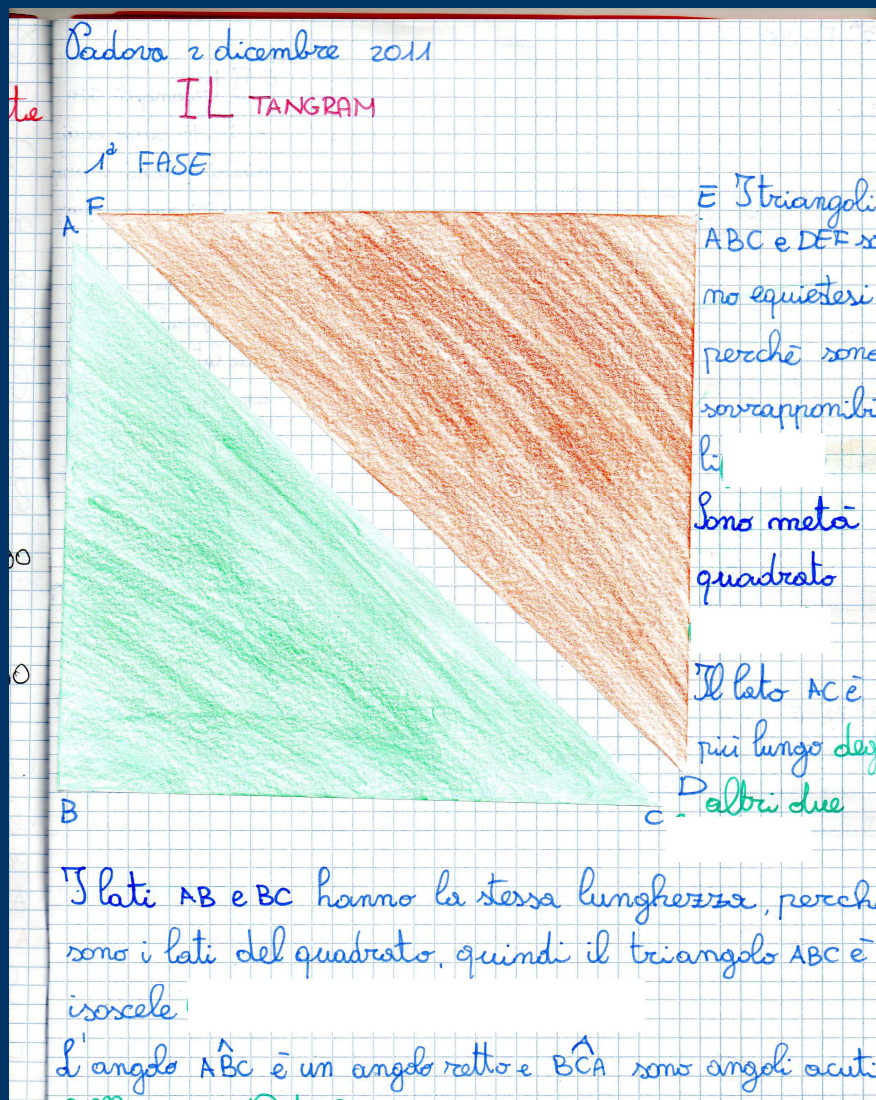 Padova 2 dicembre 2011
te
IL TANGRAM
1ª FASE
A F
E I triangoli
ABC e DEF so
no equiestesi
perchè sono
sovrapponibi
li
Sono metà
quadrato
Il lato AC è
più lungo deg
altri due
D
B
C
I lati AB e BC hanno la stessa lunghezza, perch
sono i lati del quadrato, quindi il triangolo ABC è
isoscele
L'angolo AB̂C è un angolo retto e BĈA sono angoli acuti